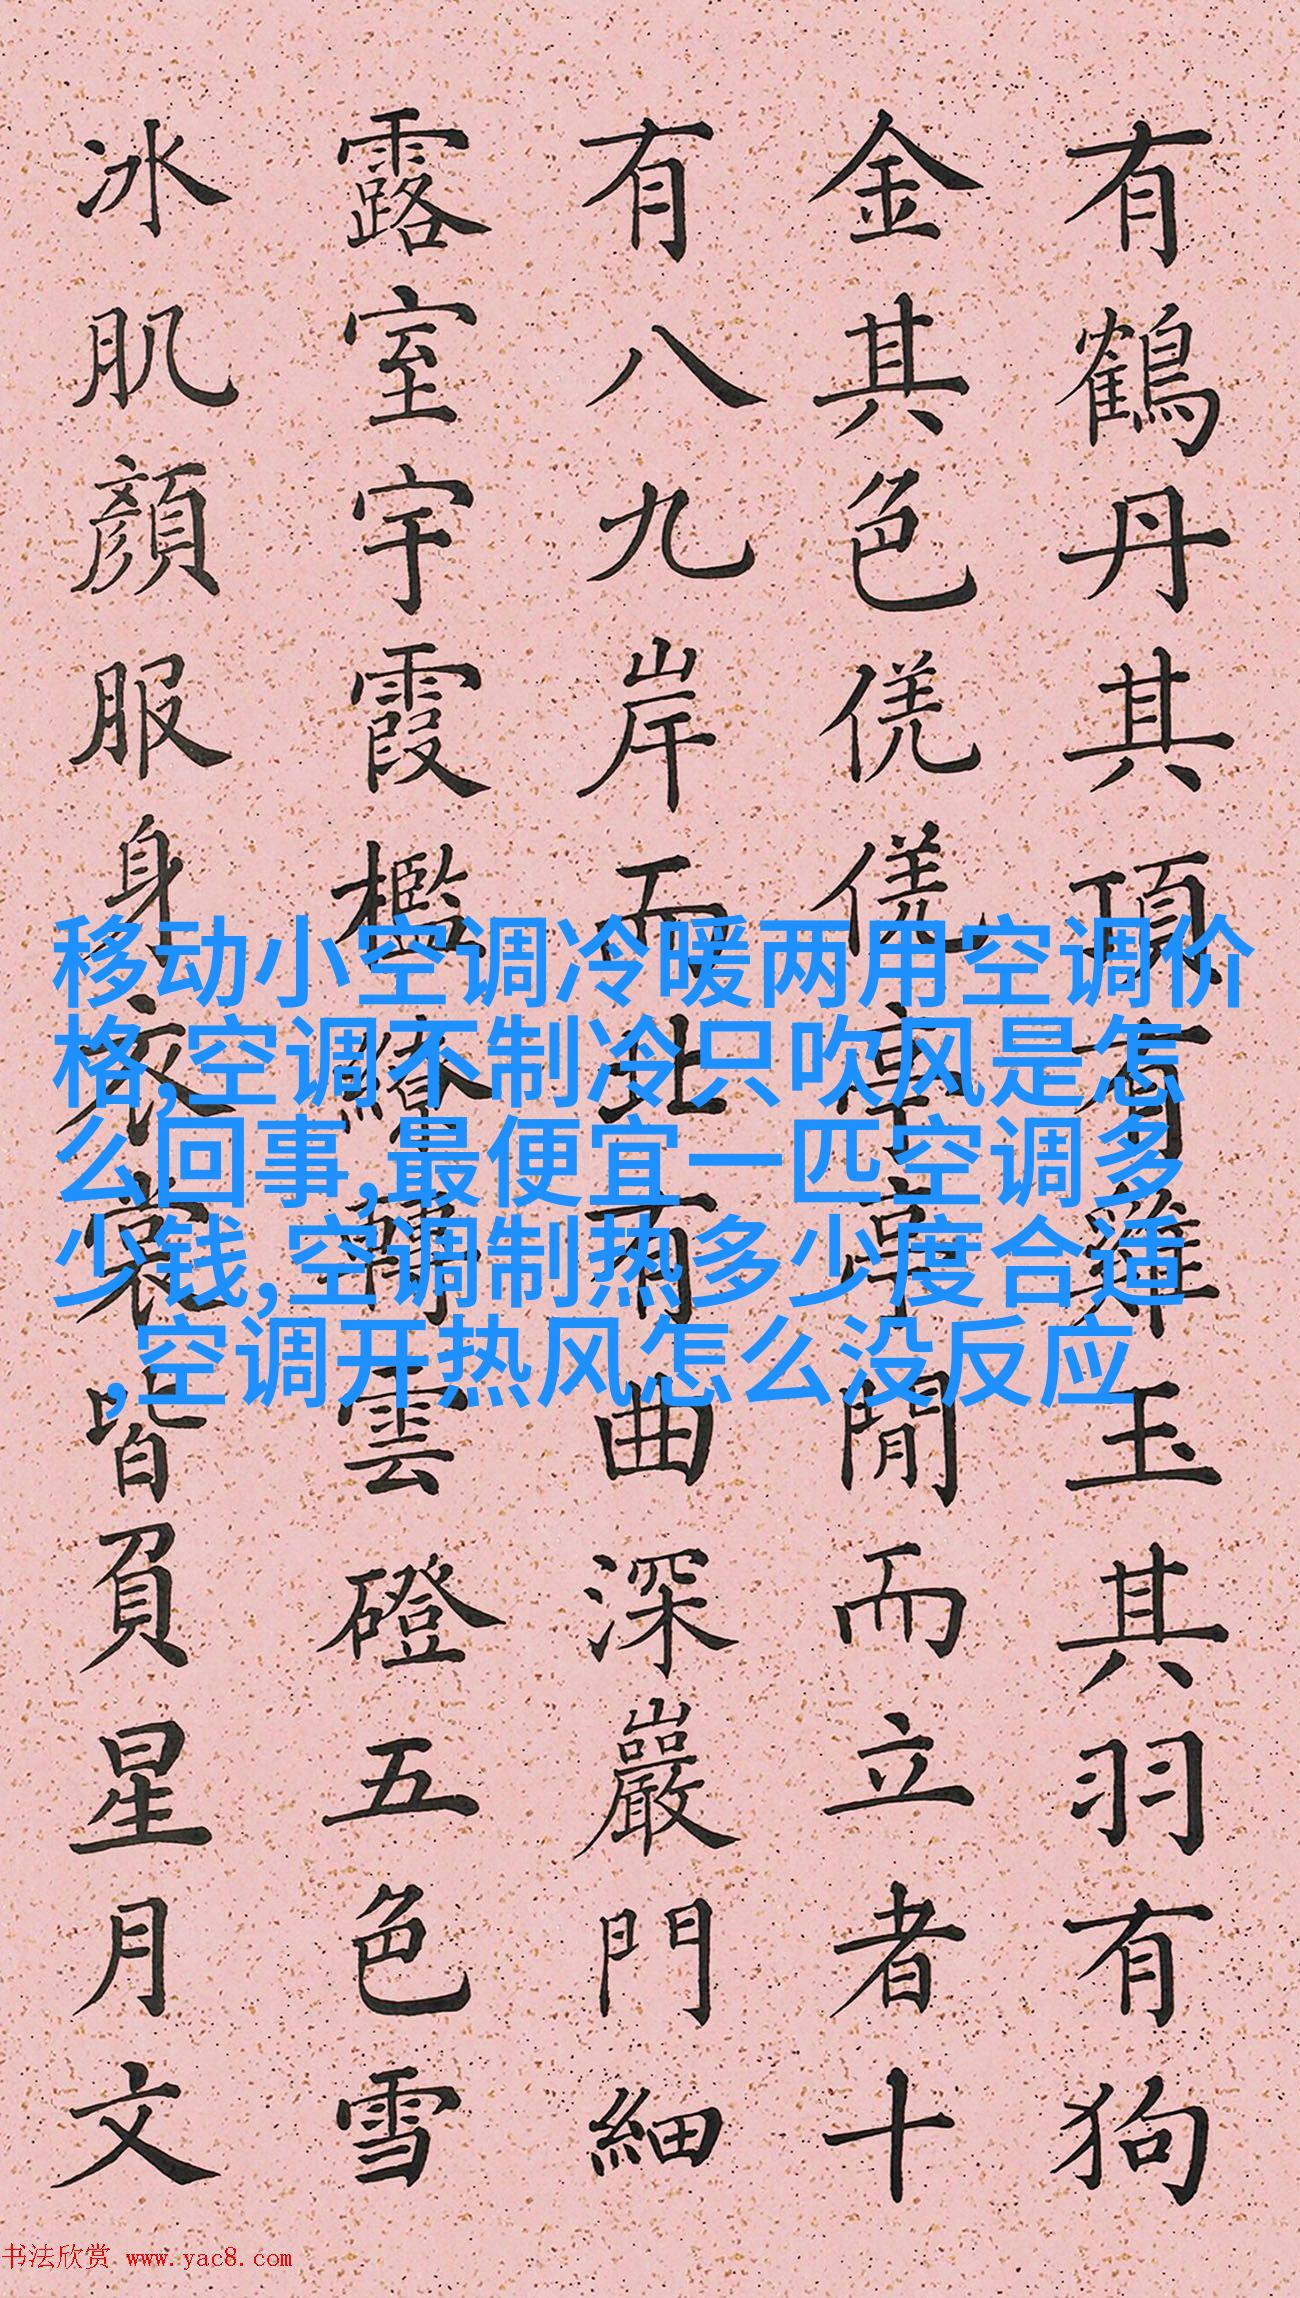 有鶴丹其頂有雞玉其羽有狗
金其色侁侁亭亭閒而立者十
有八九岸而北有曲深巖門細
露室宇霞檻繚轉雲磴五色雪
冰肌顏服身衣裳皆負星月文
移动小空调冷暖两用空调价
格,空调不制冷只吹风是怎
么回事,最便宜一匹空调多
少钱,空调制热多少度合适
,空调开热风怎么没反应
书法欣赏 www.yac8.com